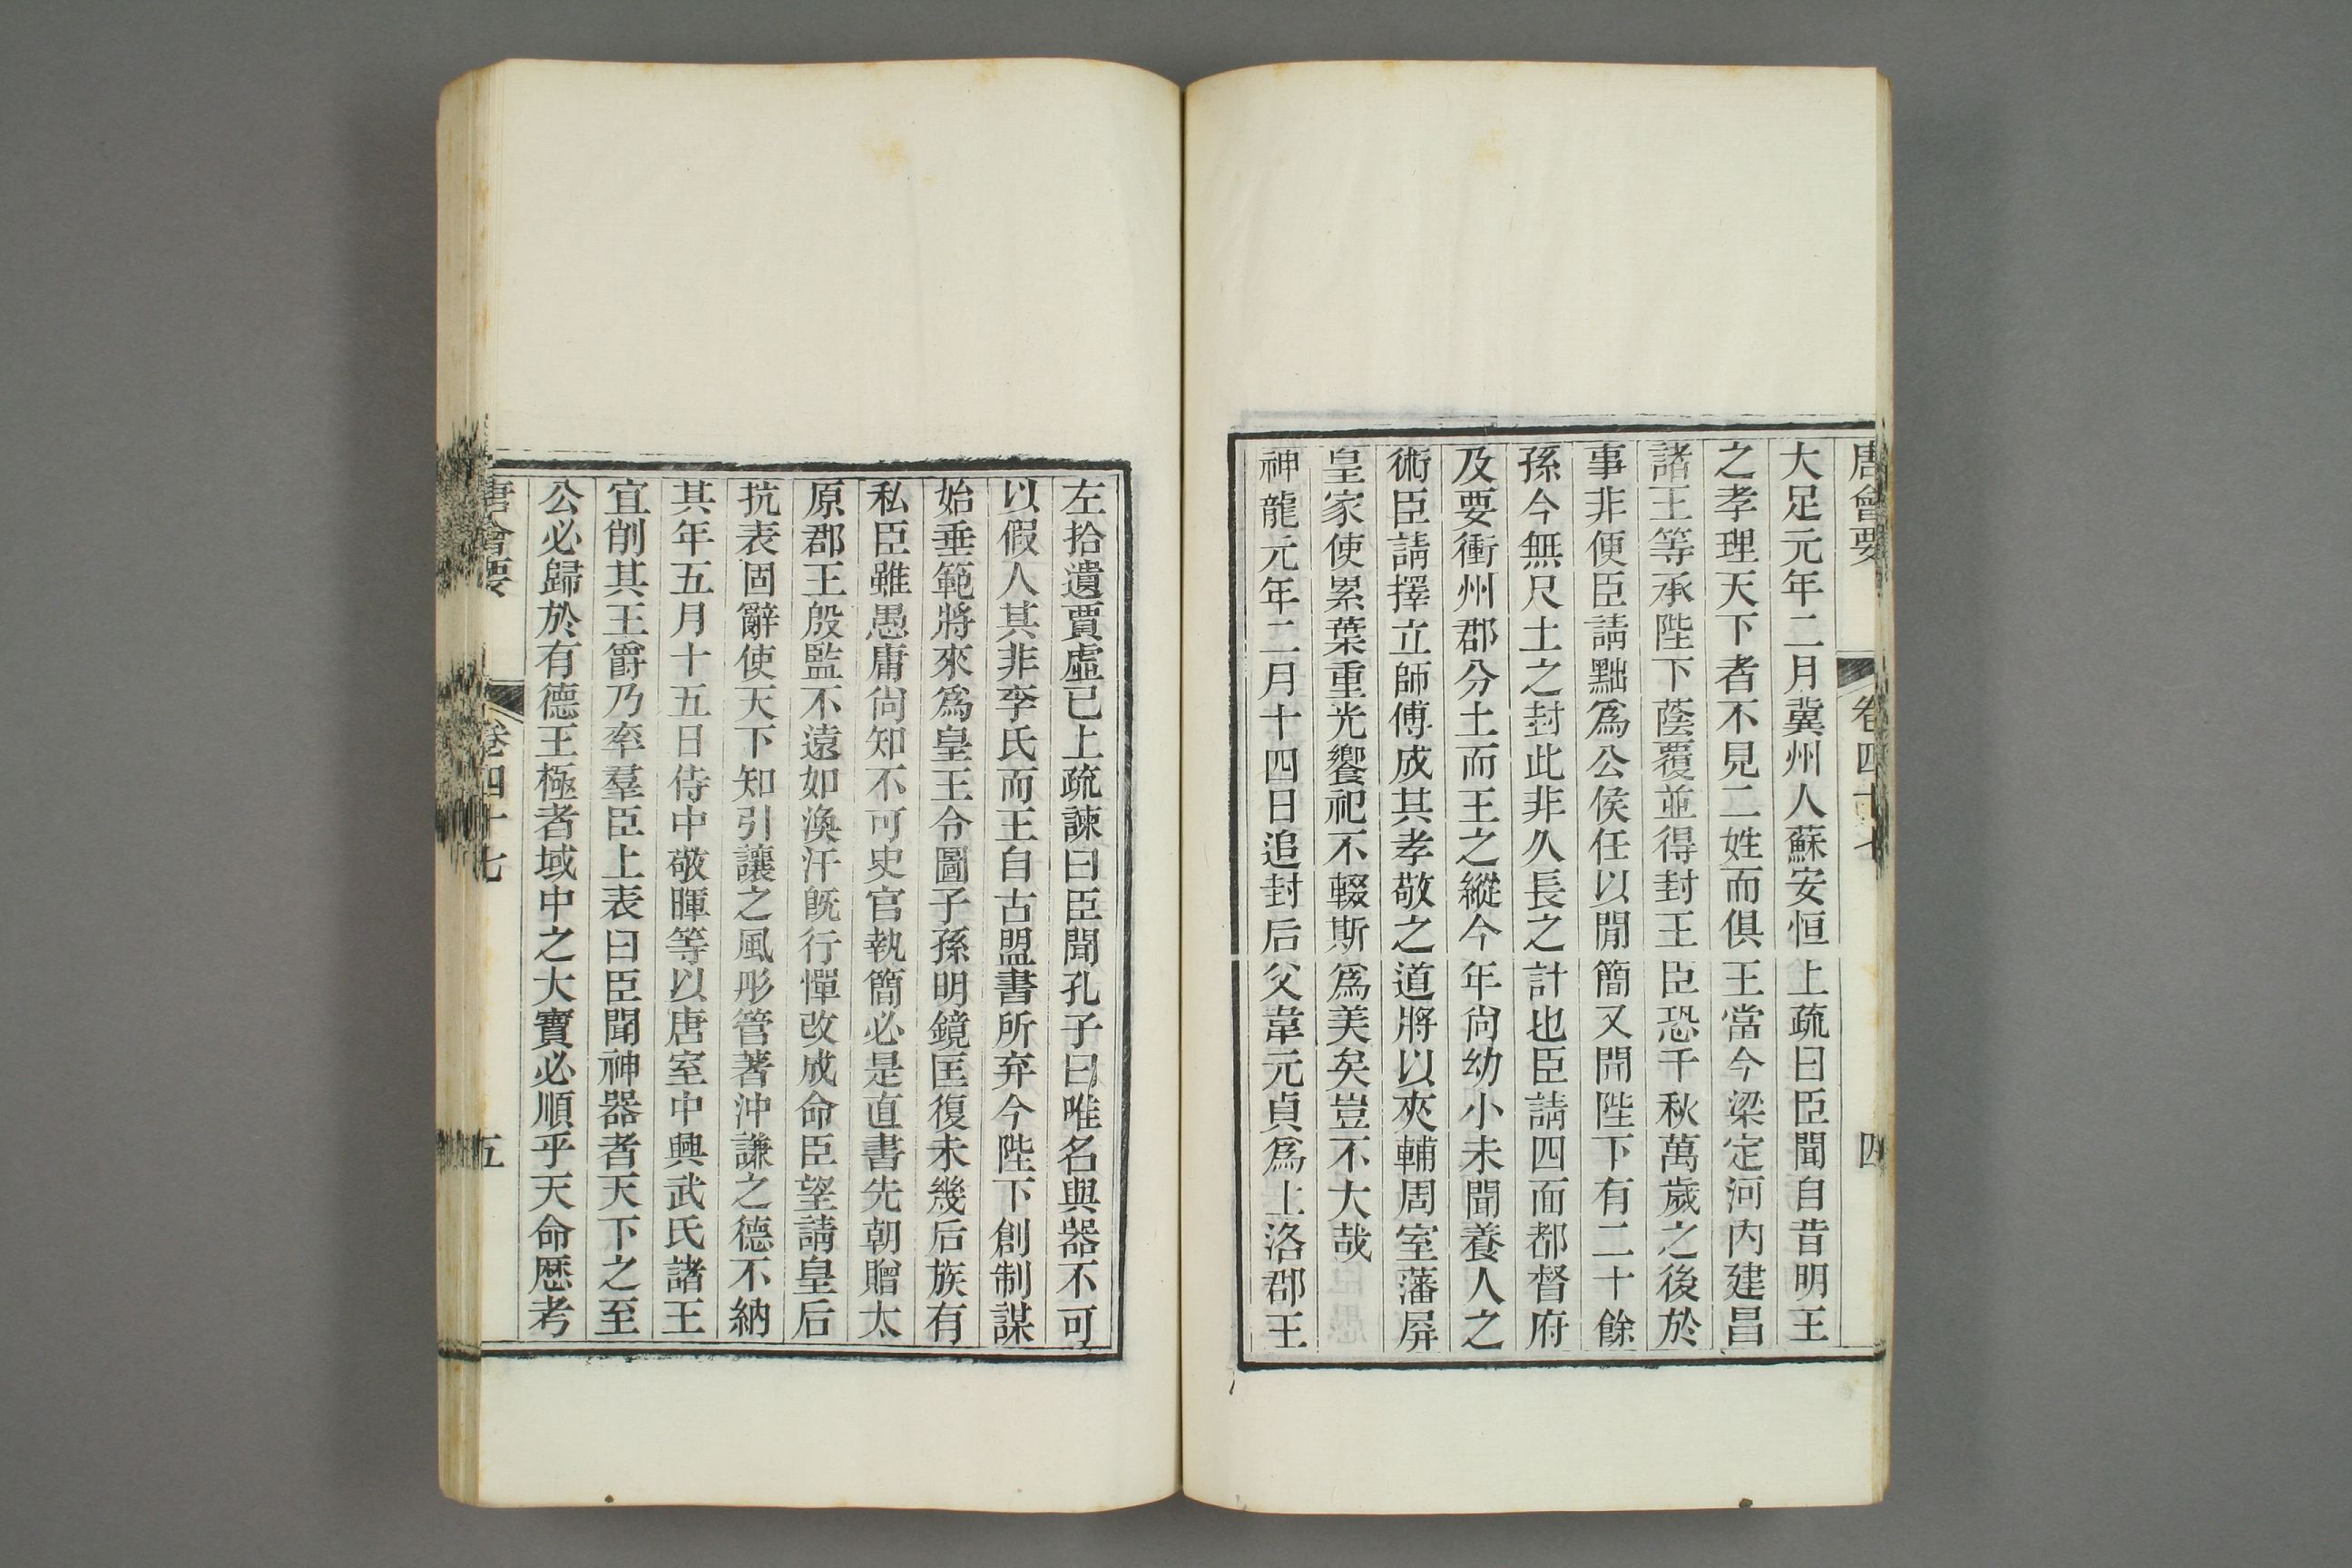 唐會要 卷四十七 四
大足元年二月冀州人蘇安恒上疏曰臣聞自昔明王
之孝理天下者不見二姓而俱王當今梁定河內建昌
諸王等承陛下蔭覆並得封王臣恐千秋萬歲之後於
事非便臣請黜爲公侯任以閒簡又聞陛下有二十餘
孫今無尺土之封此非久長之計也臣請四面都督府
及要衝州郡分土而王之縱今年尙幼小未聞養人之
術臣請擇立師傅成其孝敬之道將以夾輔周室藩屏
皇家使累葉重光饗祀不輟斯爲美矣豈不大哉
神龍元年二月十四日追封后父韋元貞爲上洛郡王
左拾遺賈虛已上疏諫曰臣聞孔子曰唯名與器不可
以假人其非李氏而王自古盟書所弃今陛下創制謀
始垂範將來爲皇王令圖子孫明鏡匡復未幾后族有
私臣雖愚庸尙知不可史官執簡必是直書先朝贈太
原郡王殷監不遠如渙汗旣行憚改成命臣望請皇后
抗表固辭使天下知引讓之風彤管著沖謙之德不納
其年五月十五日侍中敬暉等以唐室中興武氏諸王
宜削其王爵乃率羣臣上表曰臣聞神器者天下之至
公必歸於有德王極者域中之大寶必順乎天命歷考
唐會要 卷四十七 五